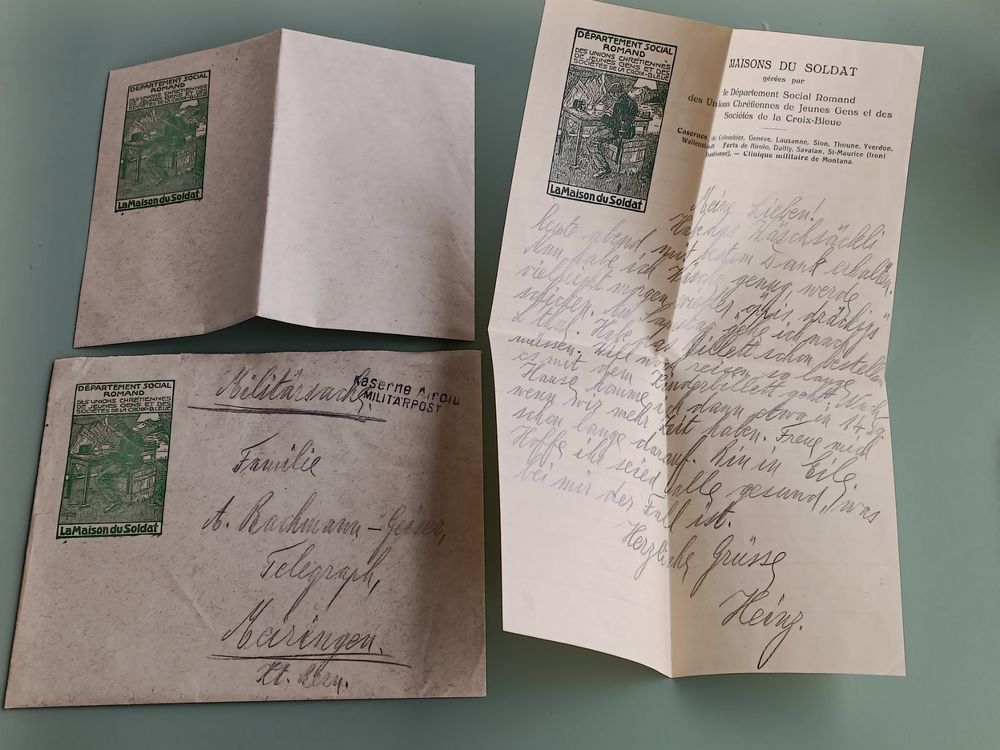 DÉPARTEMENT SOCIAL
ROMAND
DES UNIONS CHRÉTIENNES
DE JEUNES GENS ET DES
SOCIÉTÉS DE LA CROIX-BLEUE
La Maison du Soldat
DÉPARTEMENT SOCIAL
ROMAND
DES UNIONS CHRÉTIENNES
DE JEUNES GENS ET DES
SOCIÉTÉS DE LA CROIX-BLEUE
La Maison du Soldat
Militärsache
Kaserne Airolo
MILITÄRPOST
Familie
A. Rachmann-Gesser,
Telegraph,
Meiringen.
Kt. Bern.
DÉPARTEMENT SOCIAL
ROMAND
DES UNIONS CHRÉTIENNES
DE JEUNES GENS ET DES
SOCIÉTÉS DE LA CROIX-BLEUE
La Maison du Soldat
MAISONS DU SOLDAT
gérées par
le Département Social Romand
des Unions Chrétiennes de Jeunes Gens et des
Sociétés de la Croix-Bleue
Casernes de Colombier, Genève, Lausanne, Sion, Thoune, Yverdon,
Wallenstadt Forts de Airolo, Dailly, Savatan, St-Maurice (front
). — Clinique militaire de Montana.
Meine Lieben!
Habe das Waschsäckli
heute abend mit bestem Dank erhalten.
Nun habe ich Wäsche genug, werde
vielleicht morgen wieder „öppis dräckigs"
schicken. Am Samstag gehe ich nach
Habe das Billett schon bestellen
müssen. Will noch reisen so lange
es mit dem Kinderbillett geht. Nach
Hause komme ich dann etwa
wenn wir mehr Zeit haben. Freue mich
schon lange darauf. Bin in Eile.
Hoffe ihr seied alle gesund, was
bei mir der Fall ist.
Herzliche Grüsse
Heinz.